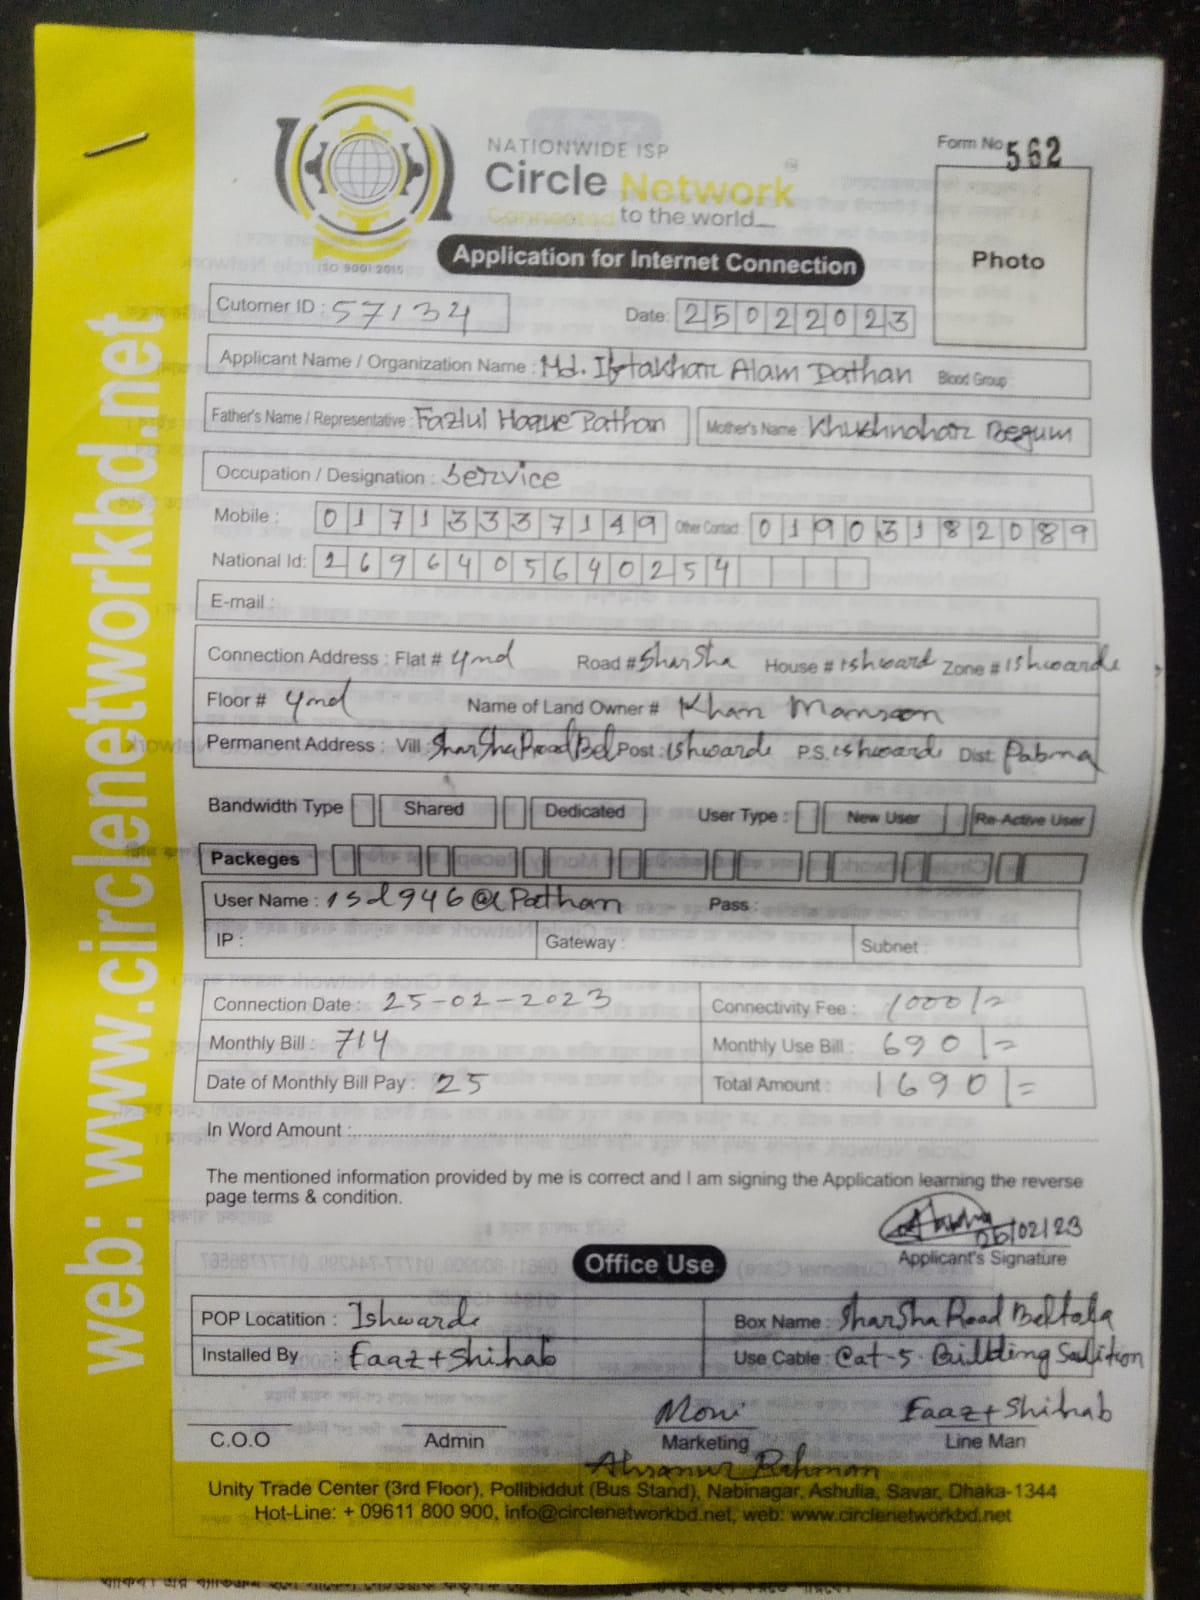 NATIONWIDE ISP
Circle Network
Connected to the world...
ISO 9001:2015
Form No 562
Photo
Application for Internet Connection
Cutomer ID : 57134 Date: 25022023
Applicant Name / Organization Name : Md. Iftakhar Alam Pathan Blood Group :
Father's Name / Representative : Fazlul Hoque Pathan Mother's Name : Khushnahar Begum
Occupation / Designation : Service
Mobile : 01713337149 Other Contact : 01903182089
National Id: 2696405640254
E-mail :
Connection Address : Flat # 4nd Road # SharSha House # Ishward Zone # Ishwarde
Floor # 4nd Name of Land Owner # Khan Mansoon
Permanent Address : Vill : SharSha Road Bel Post : Ishwarde P.S. Ishwarde Dist. Pabna
Bandwidth Type Shared Dedicated User Type : New User Re-Active User
Packeges
User Name : isd946@Pathan Pass :
IP : Gateway : Subnet :
Connection Date : 25-02-2023 Connectivity Fee : 1000/=
Monthly Bill : 714 Monthly Use Bill : 690/=
Date of Monthly Bill Pay : 25 Total Amount : 1690/=
In Word Amount :
The mentioned information provided by me is correct and I am signing the Application learning the reverse
page terms & condition.
/02/23
Applicant's Signature
Office Use
POP Locatition : Ishwarde Box Name : SharSha Road Beltala
Installed By : Faaz + Shihab Use Cable : Cat-5. Building
Moni Faaz + Shihab
C.O.O Admin Marketing Line Man
Ahsanur Rahman
Unity Trade Center (3rd Floor), Pollibiddut (Bus Stand), Nabinagar, Ashulia, Savar, Dhaka-1344
Hot-Line: + 09611 800 900, info@circlenetworkbd.net, web: www.circlenetworkbd.net
web: www.circlenetworkbd.net